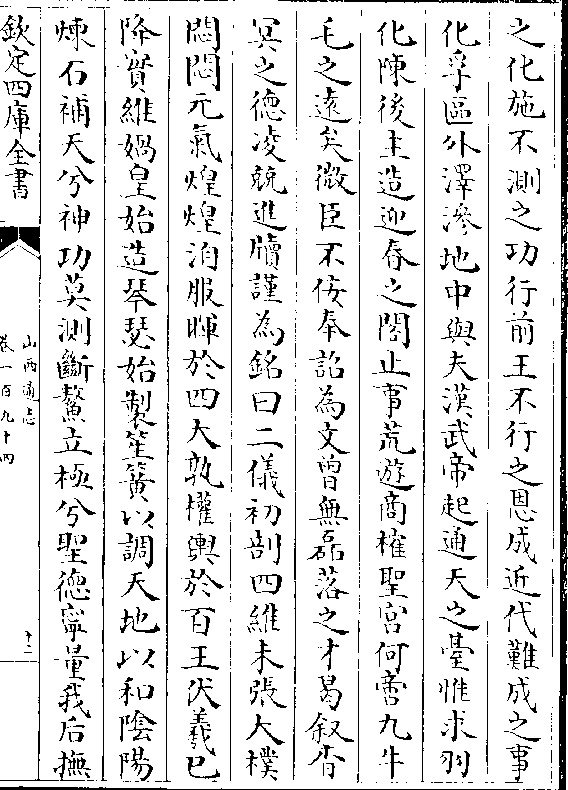 之化施不測之功行前王不行之恩成近代難成之事
化孚區外澤滲地中與夫漢武帝起通天之臺惟求羽
化陳後主造迎春之閣止事荒遊商㩁聖宮何啻九牛
毛之遠矣微臣不佞奉詔為文曽無磊落之才曷叙杳
冥之德凌兢進牘謹為銘曰二儀初剖四維未張大樸
悶悶元氣煌煌洎服暉於四大孰權輿於百王伏羲已
降實維媧皇始造琴瑟始製笙簧以調天地以和陰陽
煉石補天兮神功莫測斷鰲立極兮聖德寧量我后撫
欽定四庫全書
山西通志
卷一百九十四
十二